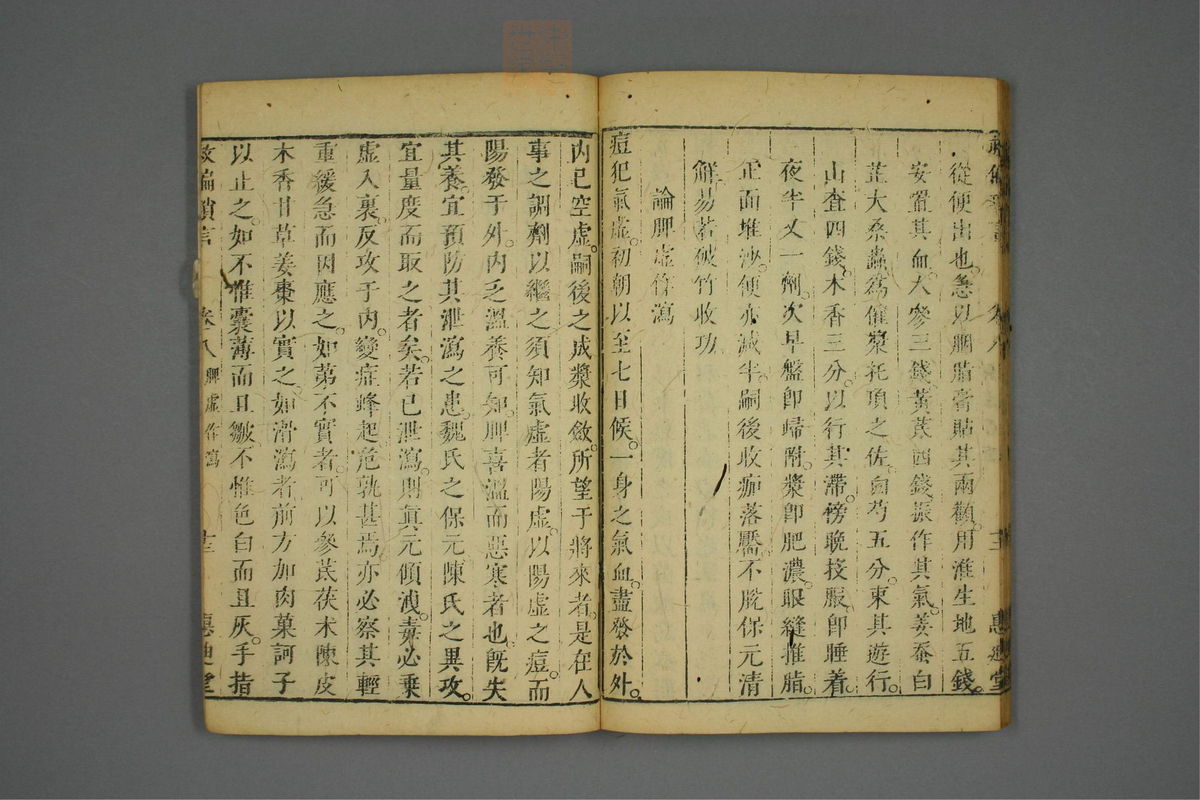 從便出也。急以胭脂膏貼其兩顴。用淮生地五錢。
安置其血。大參三錢。黃芪四錢。振作其氣。姜蚕白
芷大桑蟲。爲催漿托頂之佐。白芍五分。束其遊行。
山查四錢。木香三分。以行其滯。傍晚投服。卽睡着。
夜半又一劑。次早盤卽歸附。漿卽肥濃。眼縫推脂。
正面堆沙。便亦減半。嗣後收痂落靨。不脫保元清
解。易若破竹收功。
論脾虛作瀉
痘犯氣虛。初朝以至七日候。一身之氣血。盡發於外。
內已空虛。嗣後之成漿收斂。所望于將來者。是在人
事之調劑以繼之。須知氣虛者陽虛。以陽虛之痘。而
陽發于外。內乏溫養可知。脾喜溫而惡寒者也。旣失
其養。宜預防其泄瀉之患。魏氏之保元。陳氏之異攻。
宜量度而取之者矣。若已泄瀉。則眞元傾洩。毒必乘
虛入裏。反攻于內。變症蜂起。危孰甚焉。亦必察其輕
重緩急而因應之。如第不實者。可以參芪茯朮陳皮
木香甘草姜棗以實之。如滑瀉者。前方加肉菓訶子
以止之。如不惟囊薄而且皺。不惟色白而且灰。手指
救偏瑣言 卷八 脾虛作瀉 十三 惠迪堂